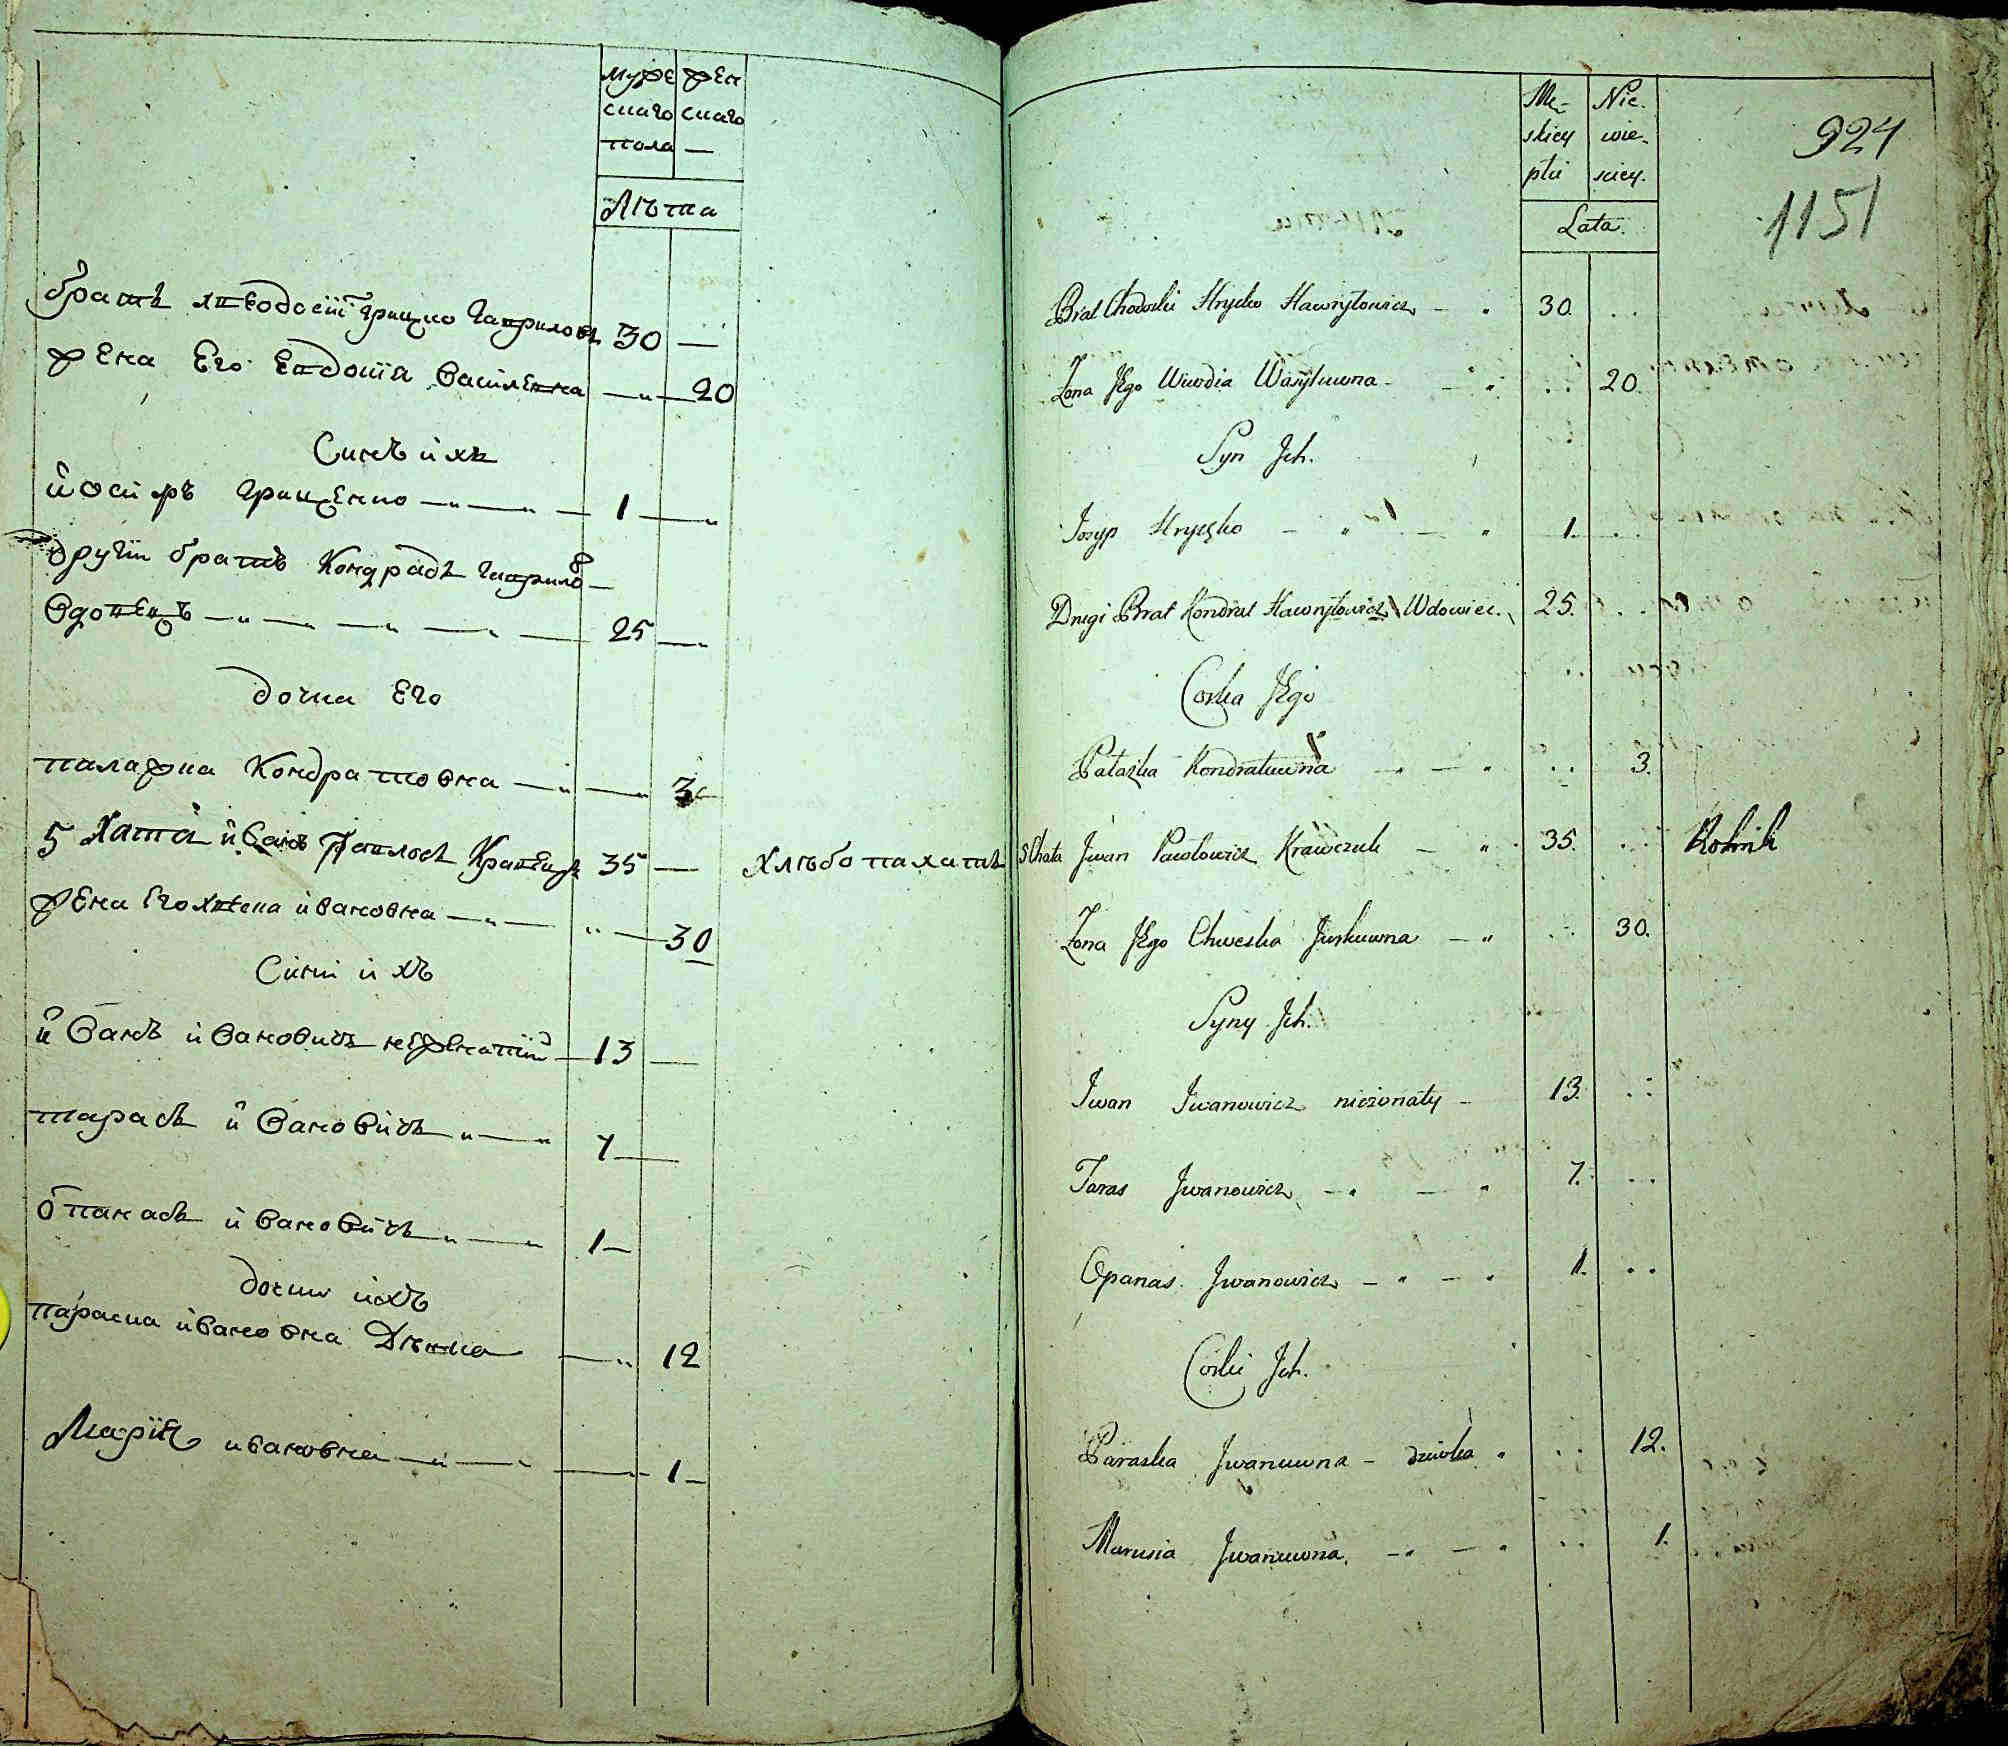 муже женскаго скаго
пола —
Лѣта
братъ хведосїй Грицко Гавриловъ 30 —
жена Его Евдокїя Василевна — " — 20
Синъ ихъ
йосипъ Грицѣнко — " — " — 1 — "
другїй братъ Кондратъ Гаврилов —
вдовецъ — " — " — " — " — 25 —
дочка Его
палажка Кондратовна — " — " 3 —
5 Хата йванъ Павловъ Кравецъ 35 — хлѣбопахатъ
жена Его Хвеска ивановна — " — " — 30
Сини ихъ
йванъ ивановичъ нежѣнатий — 13 —
тарасъ йвановичъ " — " 7 —
опанасъ йвановичъ " — " 1 —
дочки ихъ
параска йвановна Дѣвка — " 12
Марїя ивановна — " — " — " 1 —
Mę- Nie-
skiey wie-
płci sciey.
Lata.
924
1151
Brat Chodoski Hryćko Hawryłowicz — " 30. . .
Zona Jego Wiwdia Wasyluwna — " . . 20.
Syn Jch.
Josyp Hryczko — " — " 1. . .
Drugi Brat Kondrat Hawryłowicz / Wdowiec. 25. . .
Corka Jego
Pałażka Kondratuwna — " — " . . 3.
5 Chata Jwan Pawłowicz Krawczuk — " 35. . . Rolnik
Zona Jego Chweska Jurkuwna — " . . 30.
Syny Jch.
Iwan Iwanowicz nieżonaty — 13. . .
Taras Jwanowicz — " — " 7. . .
Opanas. Jwanowicz — " — " 1. . .
Corki Jch.
Paraska Jwanuwna — dziwka " . . 12.
Marusia Jwanuwna. — " — " . . 1.